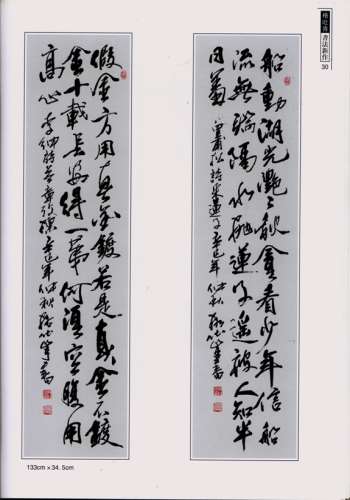 書法新作
30
船動湖光灩〻秋貪看少年信船
流無端隔水拋蓮子遙被人知半
日羞 皇甫松詩采蓮子 辛巳年仲秋
假金方用真金鍍若是真金不鍍
金十載長安得一第何須空腹用
高心 李紳詩答章孝標 辛巳年仲秋
133cm×34.5cm